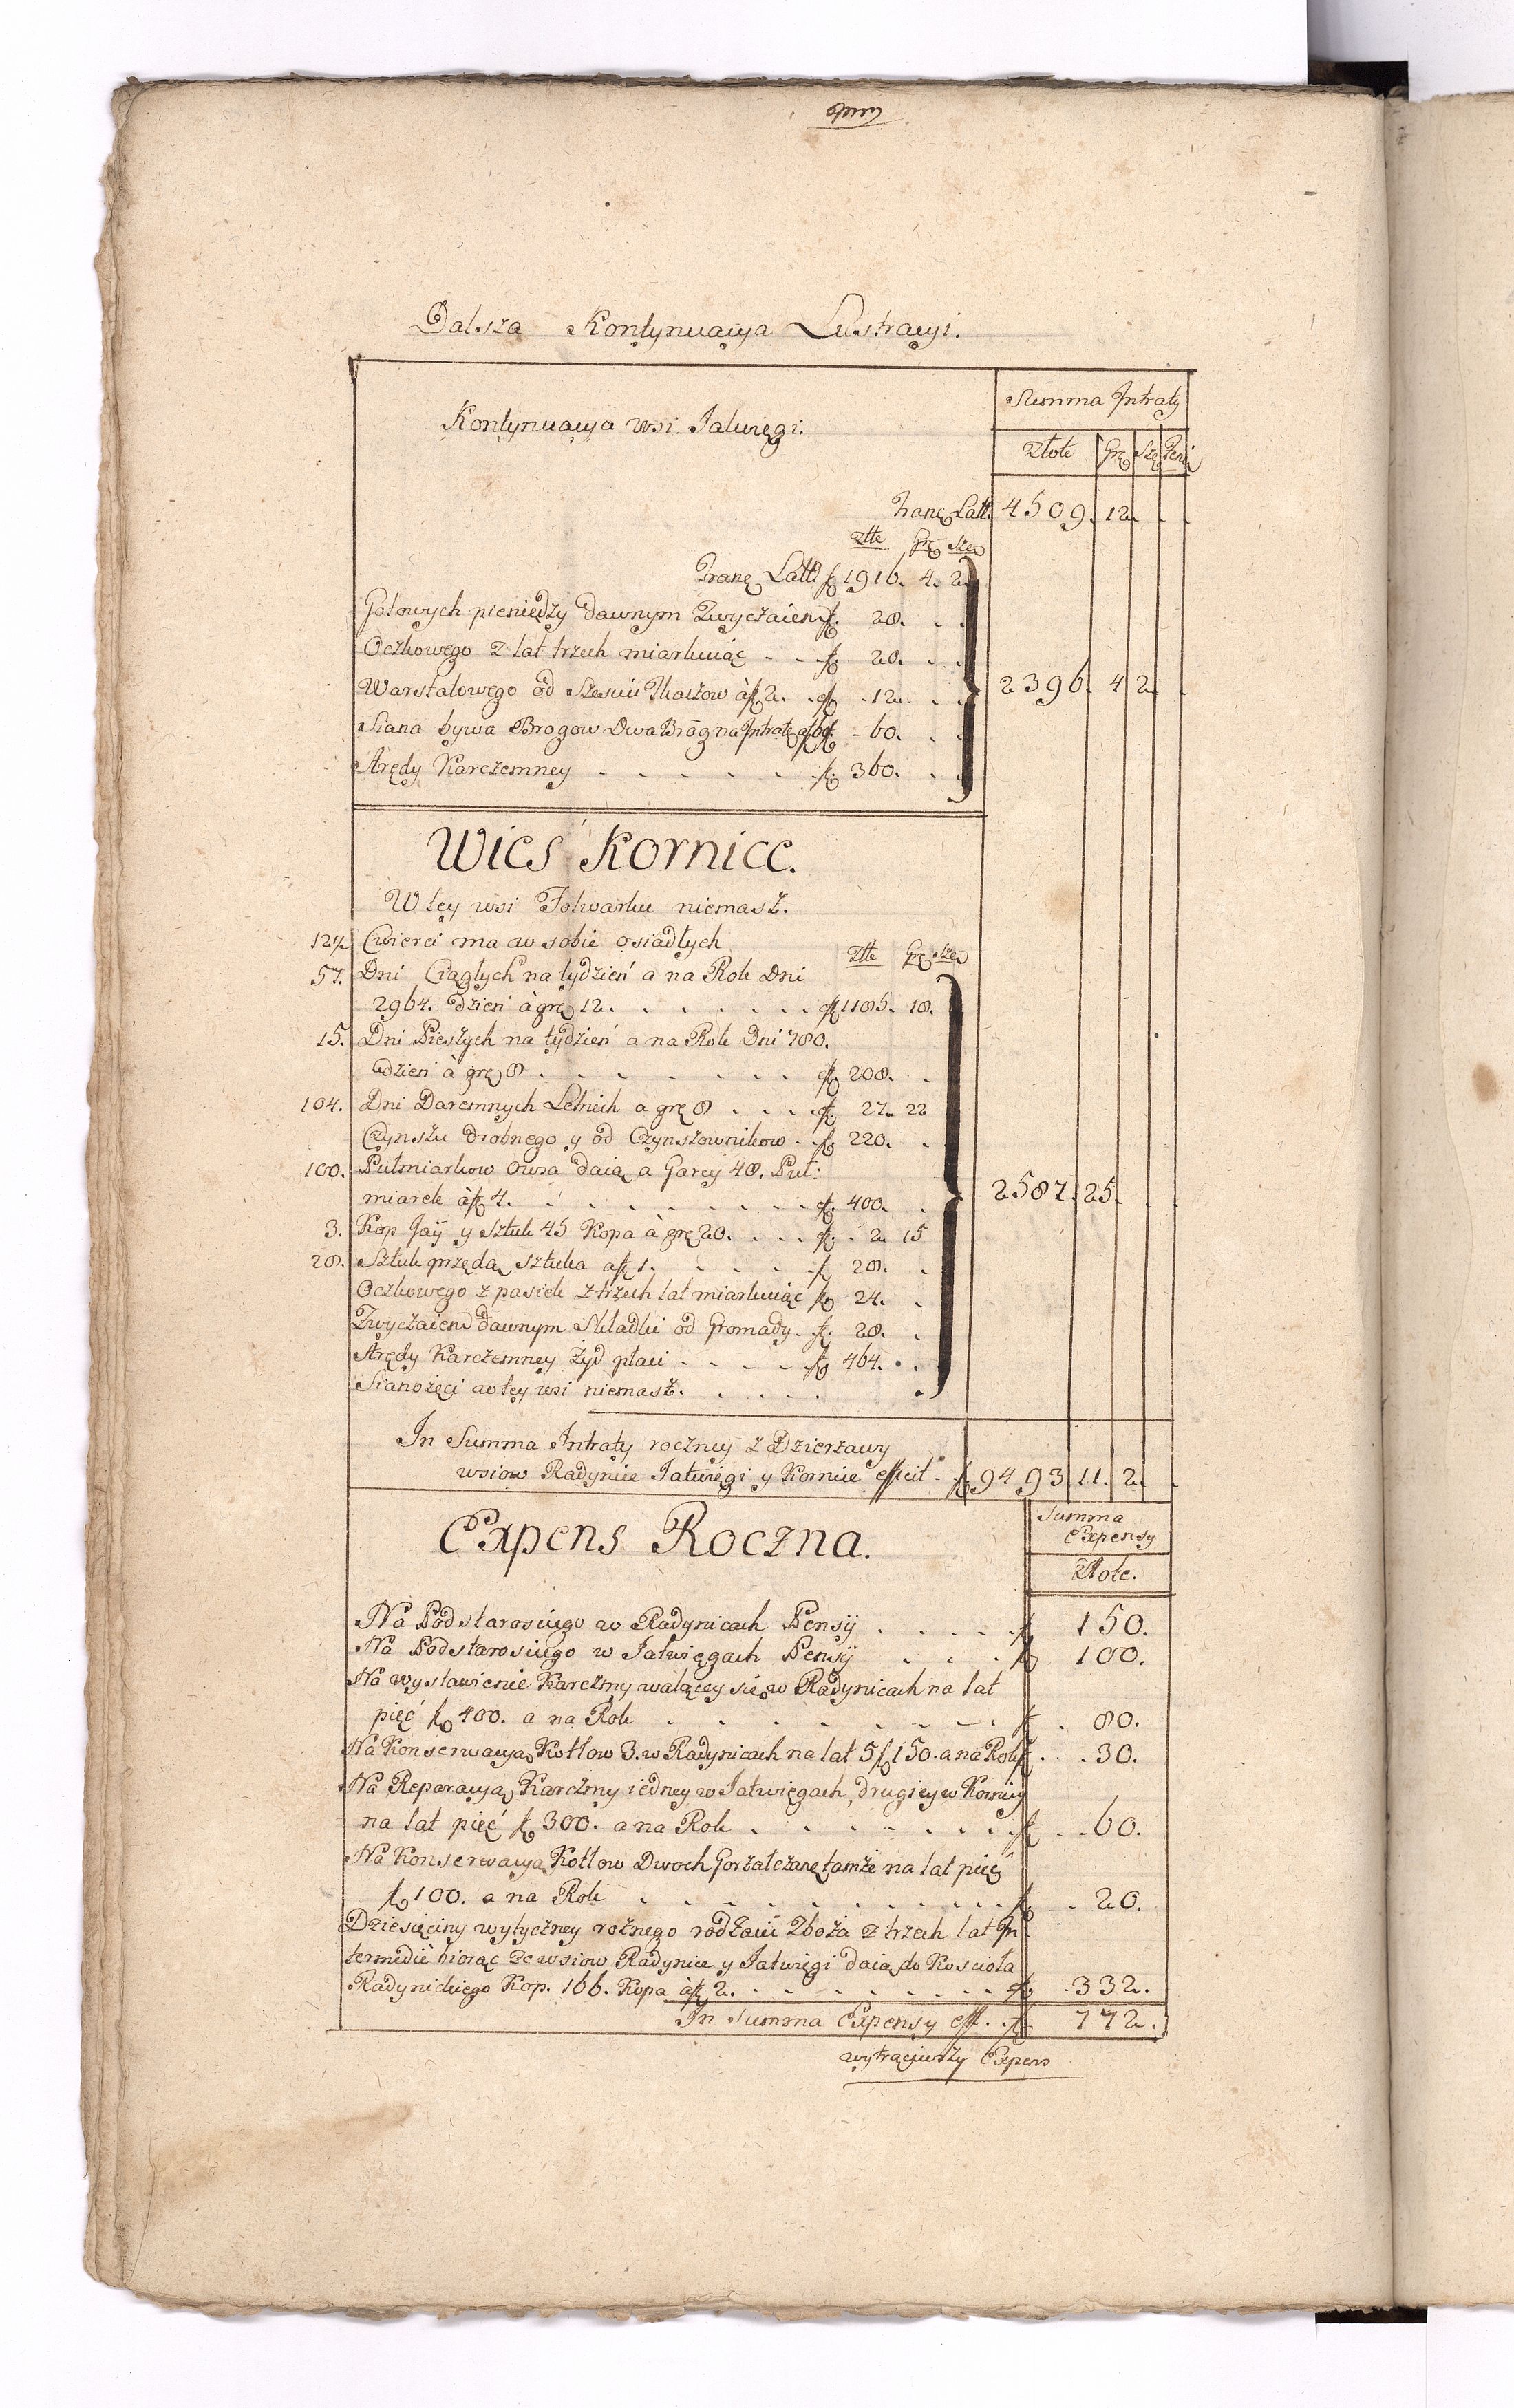 Dalsza Kontynuacya Lustracyi.
Kontynuacya wsi Jatwięgi.
Summa Jntraty
Złote Grę Szę Peni
Tranę Latt. 4509. 12. . .
złłe Grę Szeę
Tranę Latt. f 1916. 4. 2.
Gotowych pieniędzy dawnym Zwyczaiem f. 28. . .
Oczkowego z lat trzech miarkuiąc . . f. 20. . .
Warstatowego od Szesciu Tkaczow à f 2. . f. 12. . .
Siana bywa Brogow Dwa Brog na Jntratę f. 60. . .
Arędy Karczemney . . . . . . f. 360. . .
2396. 4 2. .
Wieś Kornice.
W tey wsi Folwarku niemasz.
12½ Cwierci ma w sobie osiadłych
złłe Grę Szeę
57. Dni Ciągłych na tydzień a na Rok Dni
2964. dzień à grę 12. . . . . . . f 1185. 18.
15. Dni Pieszych na tydzień a na Rok Dni 780.
dzień à grę 8 . . . . . . . f. 208. .
104. Dni Daremnych Letnich a grę 8 . . . f. 27. 22
Czynszu drobnego y od Czynszownikow . f. 220. .
100. Pułmiarkow Owsa daią a Garcy 48. Puł:
miarek à f 4. . . . . . . . . f. 400. .
3. Kop Jaÿ y Sztuk 45 Kopa à grę 20. . . . f. . 2. 15
28. Sztuk przędą sztuka a f 1. . . . . f. 28. .
Oczkowego z pasiek z trzech lat miarkuiąc f. 24. .
Zwyczaiem dawnym Składki od Gromady. f. 28. .
Arędy Karczemney Żyd płaci . . . . f. 464. . .
Sianożęci w tey wsi niemasz. . . . . .
2587. 25.
In Summa Intraty roczney z Dzierżawy
wsiow Radynice Jatwięgi y Kornice efficit. f 9493. 11. 2. .
Expens Roczna.
Summa
Expensy
Złote.
Na Podstarosciego w Radynicach Pensÿ . . . . . f. 150.
Na Podstarosciego w Jatwięgach Pensÿ . . . f. 100.
Na wystawienie Karczmy walącey się w Radynicach na lat
pięć f. 400. a na Rok . . . . . . . . . f. . 80.
Na Konserwacyą Kotłow 3. w Radynicach na lat 5 f 150. a na Rok f. . . 30.
Na Reparacyą Karczmy iedney w Jatwięgach, drugiey w Kornicy
na lat pięć f. 300. a na Rok . . . . . . . . f. . . 60.
Na Konserwacyą Kotłow Dwoch Gorzałczanę tamże na lat pięć
f. 100. a na Rok . . . . . . . . . . . . f. . 20.
Dziesięciny wytyczney rożnego rodzaiu Zboża z trzech lat Jn
termedie biorąc ze wsiow Radynice y Jatwięgi daią do Koscioła
Radynickiego Kop. 166. Kopa à f 2. . . . . . . . . f. . 332.
In Summa Expensy eff. . f. 772.
wytrąciwszy Expens